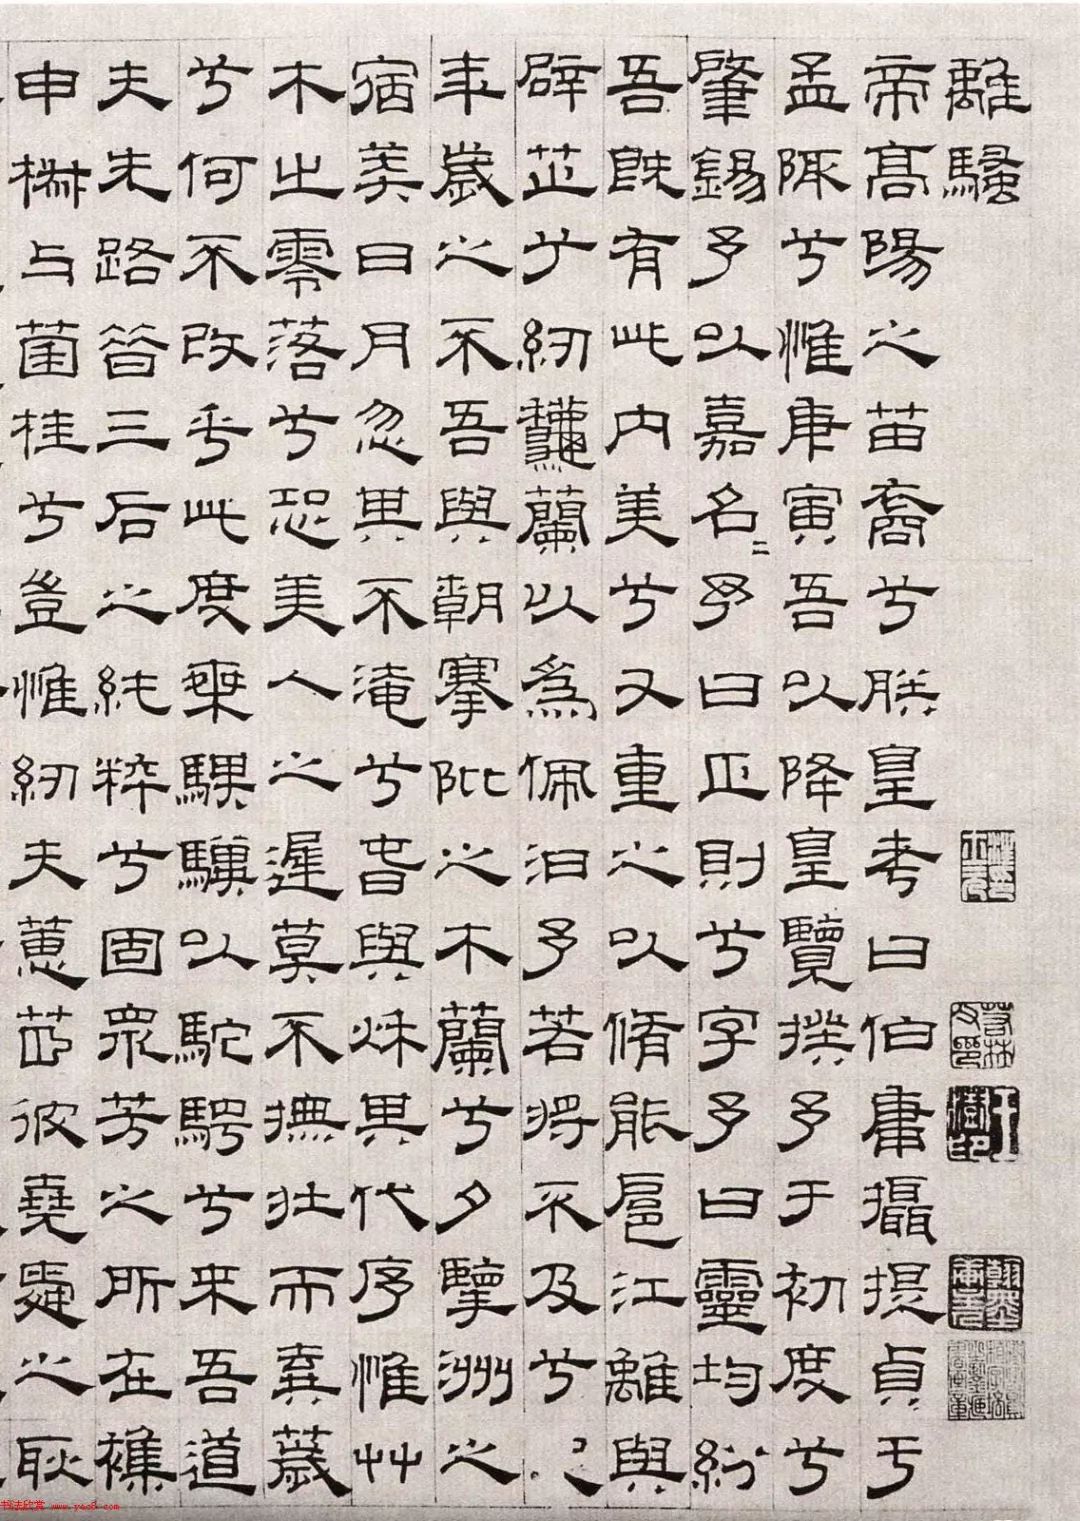 離騷
帝高陽之苗裔兮朕皇考曰伯庸攝提貞于
孟陬兮惟庚寅吾以降皇覽揆予于初度兮
肇錫予以嘉名二予曰正則兮字予曰靈均紛
吾既有此內美兮又重之以脩能扈江離與
辟芷兮紉龝蘭以為佩汩予若將不及兮
年歲之不吾與朝搴阰之木蘭兮夕擥洲之
宿莽日月忽其不淹兮春與秋其代序惟艸
木之零落兮恐美人之遲莫不撫壯而棄薉
兮何不改乎此度乘騏驥以駝騁兮來吾道
夫先路昔三后之純粹兮固眾芳之所在襍
申椒与菌桂兮豈惟紉夫蕙茝彼堯舜之耿
书法欣赏 www.yac8.com